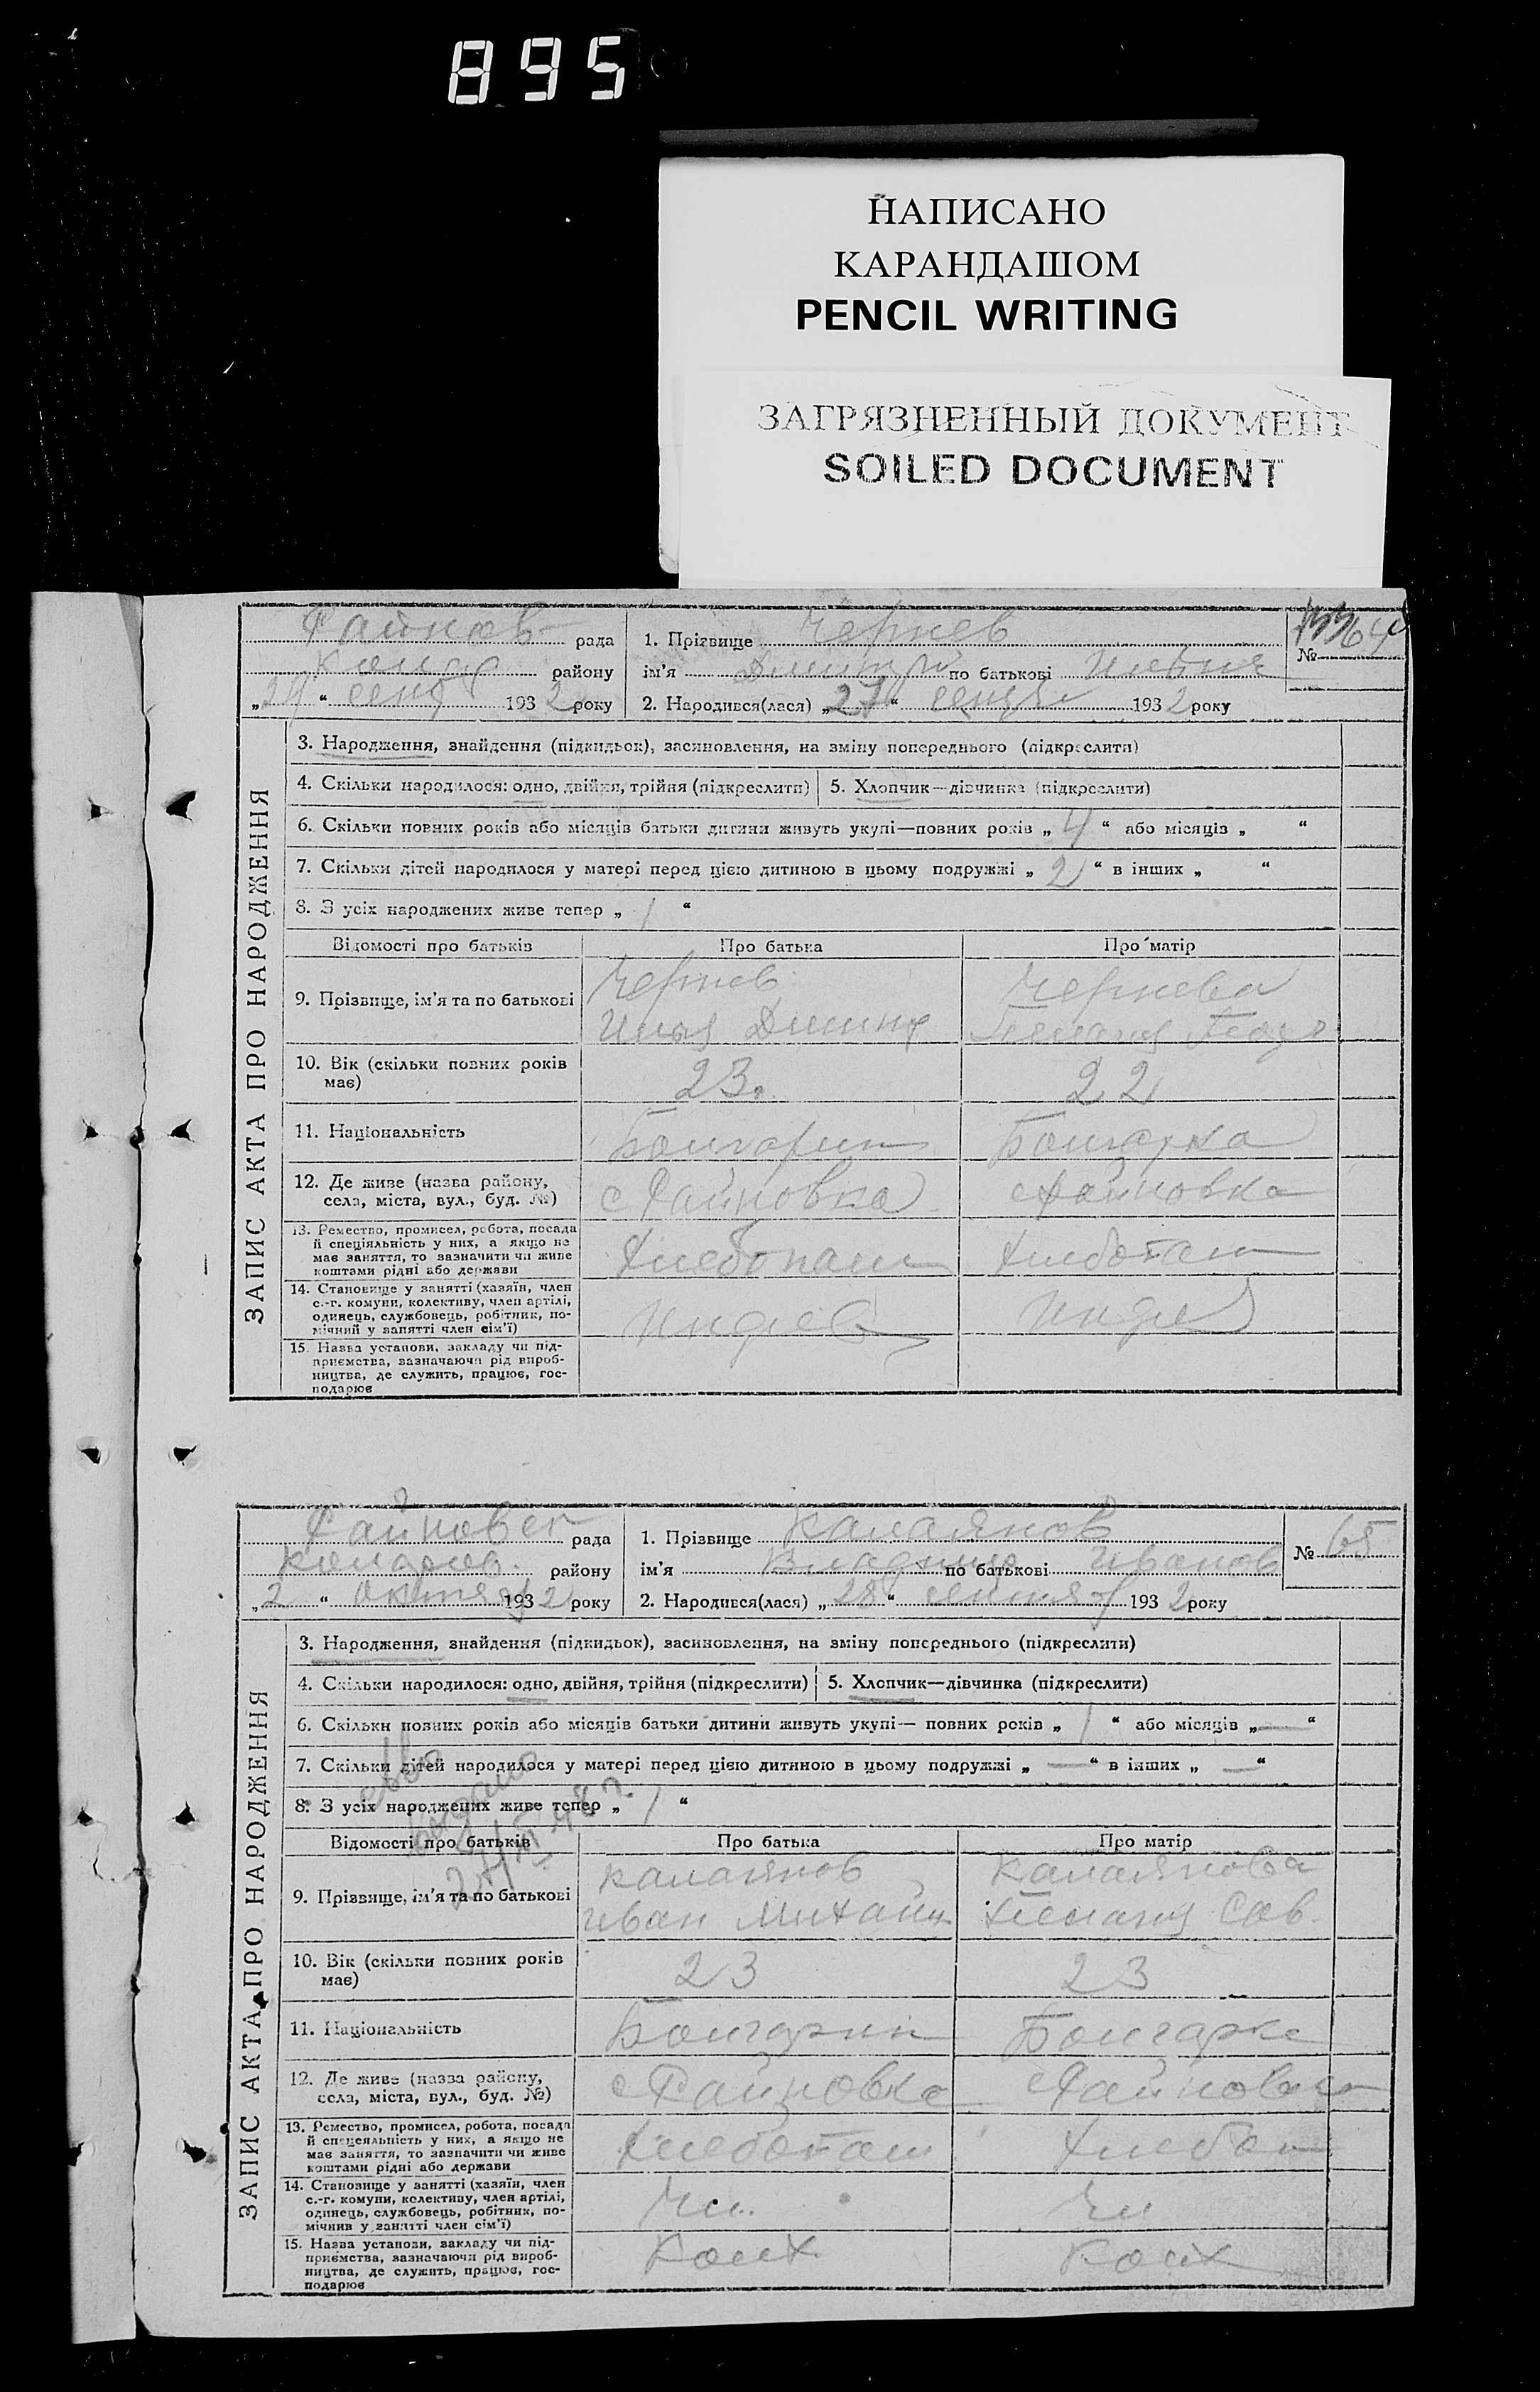 895
НАПИСАНО
КАРАНДАШОМ
PENCIL WRITING
ЗАГРЯЗНЕННЫЙ ДОКУМЕНТ
SOILED DOCUMENT
Райнов рада
району
193 2 року
1. Прізвище Чернев
ім'я Дмитрий по батькові
2. Народився(лася) „ 27 “ 193 2 року
№ 64
ЗАПИС АКТА ПРО НАРОДЖЕННЯ
3. Народження, знайдення (підкидьок), засиновлення, на зміну попереднього (підкреслити)
4. Скільки народилося: одно, двійня, трійня (підкреслити) 5. Хлопчик—дівчинка (підкреслити)
6. Скільки повних років або місяців батьки дитини живуть укупі—повних років „ 4 “ або місяців „ “
7. Скільки дітей народилося у матері перед цією дитиною в цьому подружжі „ 2 “ в інших „ “
8. З усіх народжених живе тепер „ 1 “
Відомості про батьків Про батька Про матір
9. Прізвище, ім'я та по батькові
Чернев Чернева
Илья Дмит
10. Вік (скільки повних років
має)
23. 22
11. Національність
Болгарин Болгарка
12. Де живе (назва району,
села, міста, вул., буд. №)
с Райновка с Райновка
13. Ремество, промисел, робота, посада
й спеціяльність у них, а якщо не
має заняття, то зазначити чи живе
коштами рідні або держави
Хлебопаш Хлебопаш
14. Становище у занятті (хазяїн, член
с.-г. комуни, колективу, член артілі,
одинець, службовець, робітник, по-
мічний у занятті член сім'ї)
15. Назва установи, закладу чи під-
приємства, зазначаючи рід вироб-
ництва, де служить, працює, гос-
подарює
Райновск рада
Коларов. району
„ 2 “ октяб 193 2 року
1. Прізвище Калаянов
ім'я Владимир по батькові Иванов
2. Народився(лася) „ 28 “ сентяб 193 2 року
№ 65
ЗАПИС АКТА ПРО НАРОДЖЕННЯ
3. Народження, знайдення (підкидьок), засиновлення, на зміну попереднього (підкреслити)
4. Скільки народилося: одно, двійня, трійня (підкреслити) 5. Хлопчик—дівчинка (підкреслити)
6. Скільки повних років або місяців батьки дитини живуть укупі— повних років „ 1 “ або місяців „ — “
7. Скільки дітей народилося у матері перед цією дитиною в цьому подружжі „ — “ в інших „ — “
8. З усіх народжених живе тепер „ 1 “
Відомості про батьків Про батька Про матір
9. Прізвище, ім'я та по батькові
Калаянов Калаянова
Иван Михайл. Пелагия Сав.
10. Вік (скільки повних років
має)
23 23
11. Національність
Болгарин Болгарка
12. Де живе (назва району,
села, міста, вул., буд. №)
с Райновка с Райновка
13. Ремество, промисел, робота, посада
й спецеяльність у них, а якщо не
має заняття, то зазначити чи живе
коштами рідні або держави
Хлебопаш Хлебоп
14. Становище у занятті (хазяїн, член
с.-г. комуни, колективу, член артілі,
одинець, службовець, робітник, по-
мічнив у занятті член сім'ї)
Чл. Чл
15. Назва установи, закладу чи під-
приємства, зазначаючи рід вироб-
ництва, де служить, працює, гос-
подарює
Колх Колх